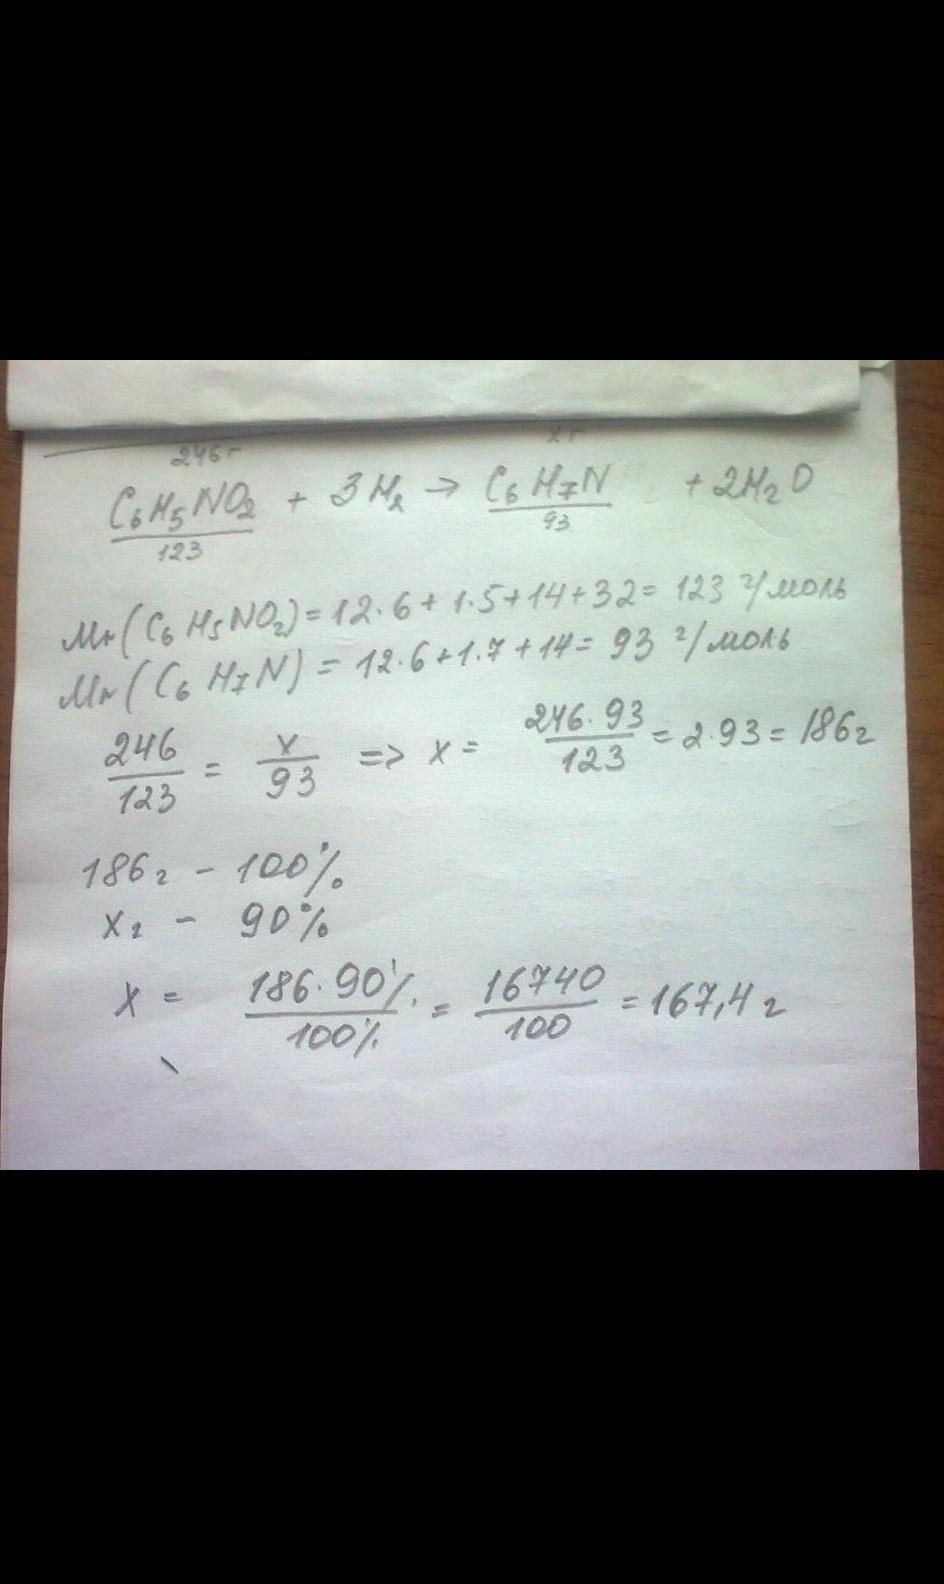 246г xг
C₆H₅NO₂ + 3H₂ → C₆H₇N + 2H₂O
123 93
Mr(C₆H₅NO₂)=12·6+1·5+14+32= 123 г/моль
Mr(C₆H₇N) = 12·6+1·7+14= 93 г/моль
246/123 = x/93 => x = 246·93/123 = 2·93 = 186г
186г - 100%
xг - 90%
x = 186·90%/100% = 16740/100 = 167,4 г